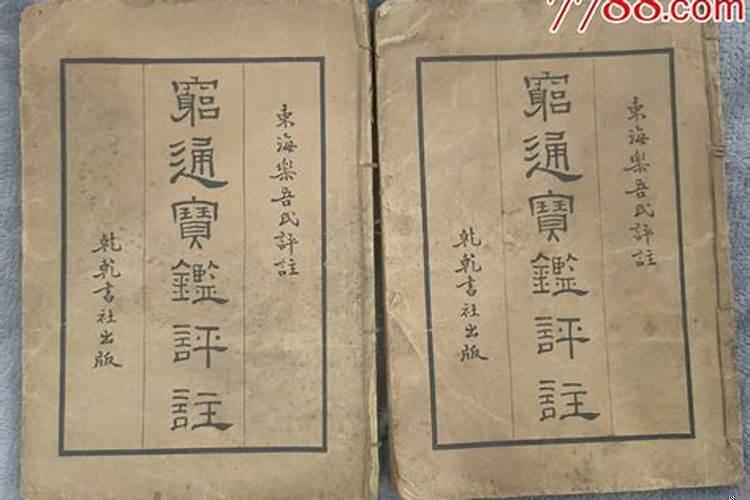 7788.com
東海樂吾氏評註
窮通寶鑑評註
乾乾書社出版
東海樂吾氏評註
窮通寶鑑評註
乾乾書社出版